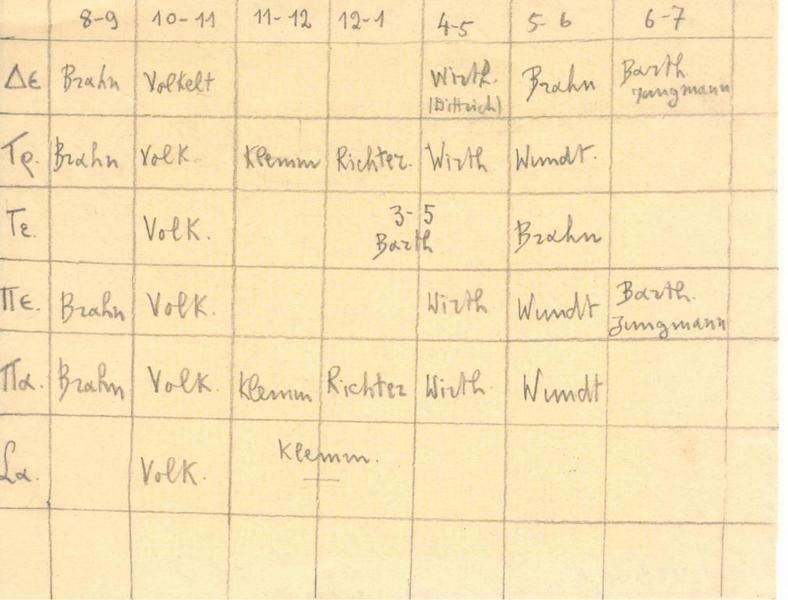 8-9 10-11 11-12 12-1 4-5 5-6 6-7
Δε Brahn Volkelt Wirth. Brahn Barth
(Dittrich) Jungmann
Τρ. Brahn Volk. Klemm Richter. Wirth Wundt.
Τε. Volk. 3-5 Brahn
Barth
Πε. Brahn Volk. Wirth Wundt Barth.
Jungmann
Πα. Brahn Volk. Klemm Richter Wirth. Wundt
Σα. Volk. Klemm.